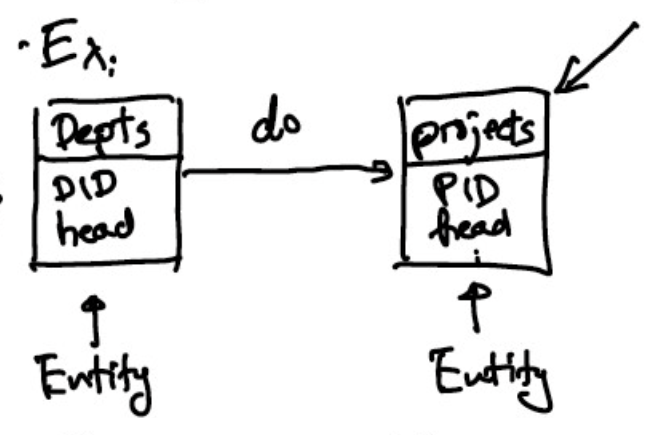 · Ex:
Depts
DID
head
do
projects
PID
head
Entity
Entity